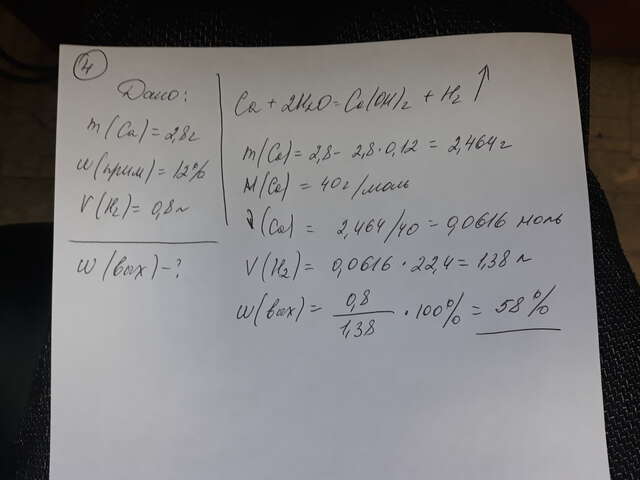 ④
Дано:
m(Ca) = 2,8г
W(прим) = 12%
V(H₂) = 0,8л
W(вых) - ?
Ca + 2H₂O = Ca(OH)₂ + H₂ ↑
m(Ca) = 2,8 - 2,8 · 0,12 = 2,464г
M(Ca) = 40г/моль
ν(Ca) = 2,464/40 = 0,0616 моль
V(H₂) = 0,0616 · 22,4 = 1,38 л
W(вых) = 0,8/1,38 · 100% = 58%